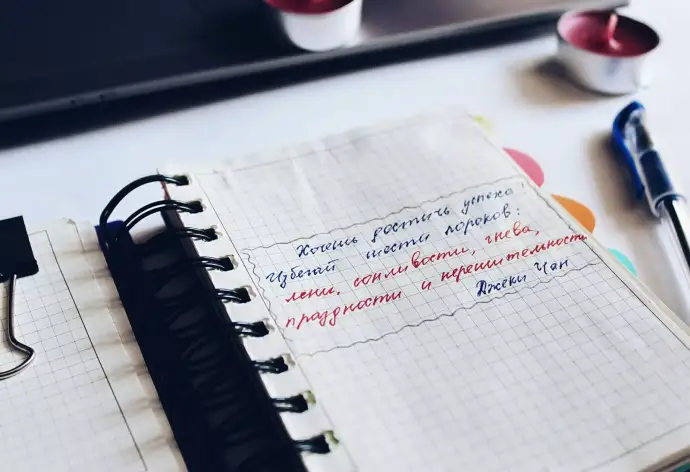 Хочешь достичь успеха?
Избегай шести пороков:
лени, сонливости, гнева,
праздности и нерешительности
Джеки Чан